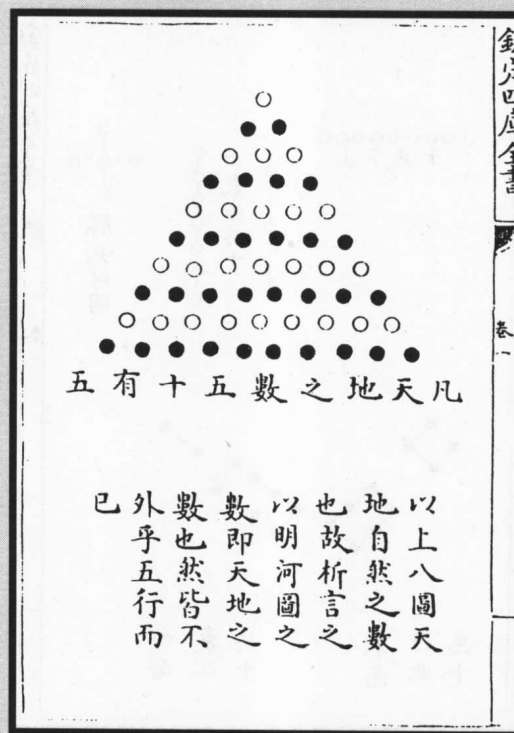 欽定四庫全書
卷一
凡天地之數五十有五
以上八圖天
地自然之數
也故析言之
以明河圖之
數即天地之
數也然皆不
外乎五行而
已